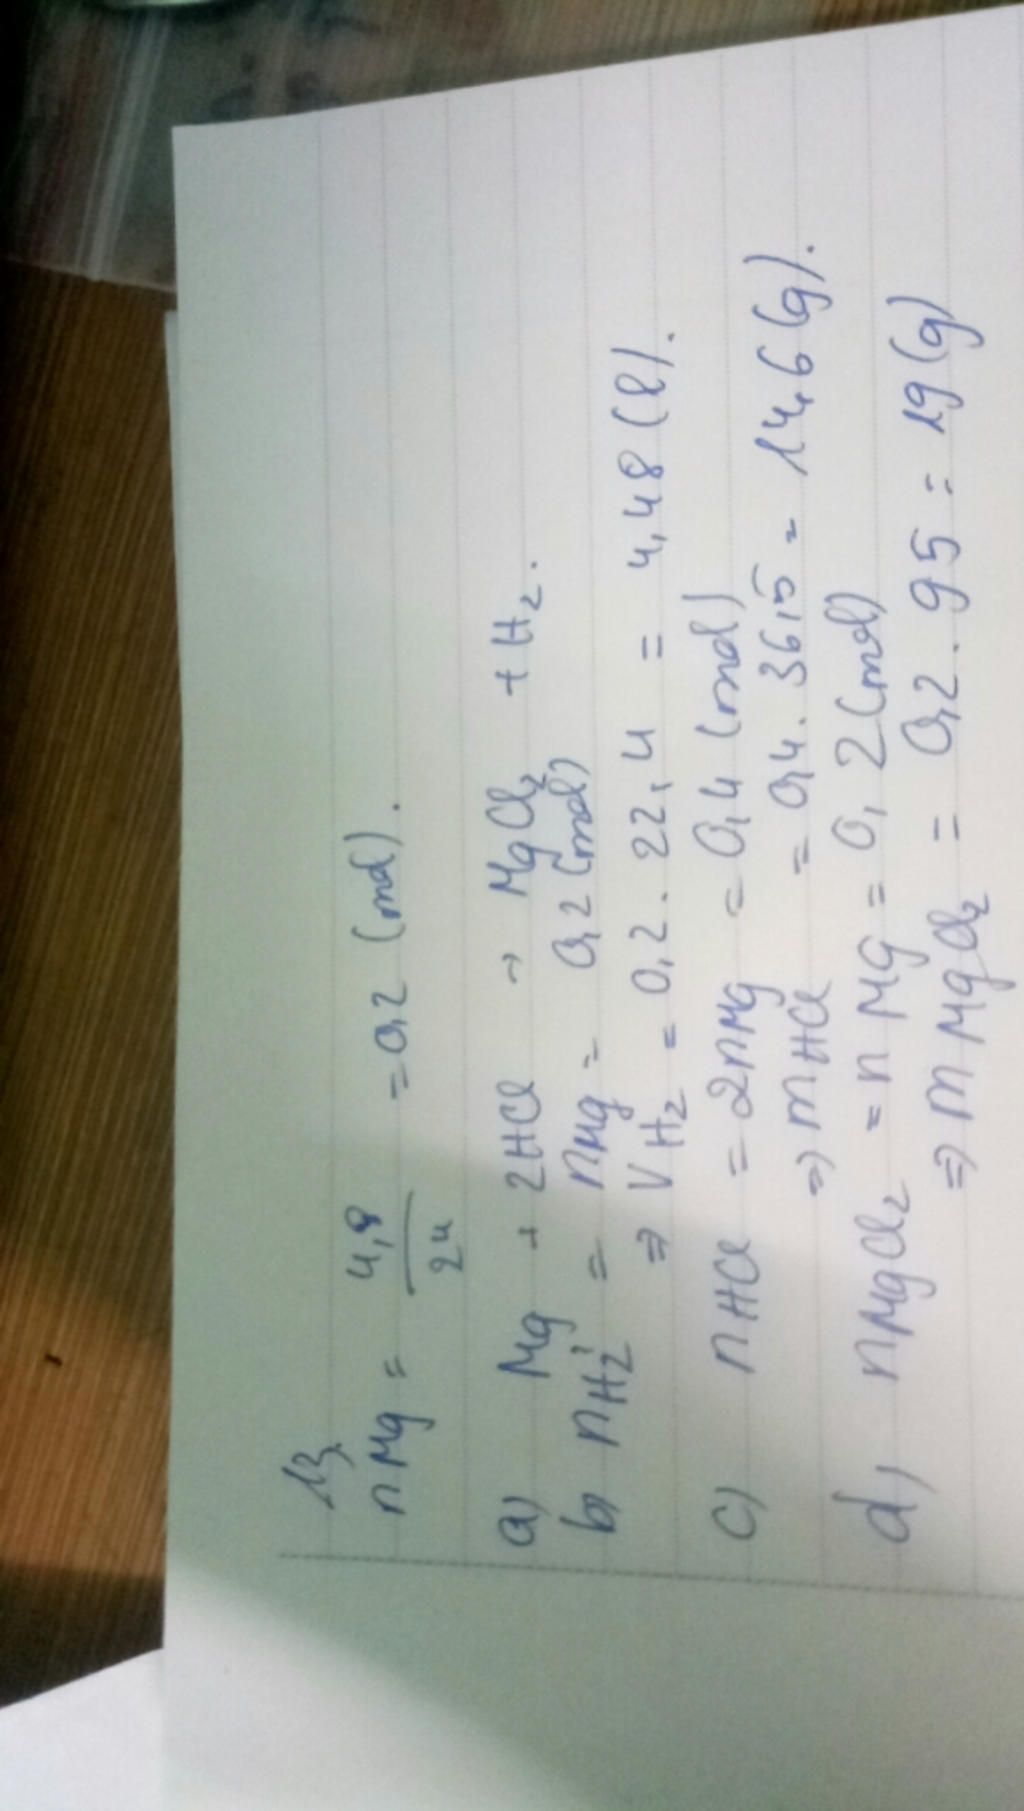 13,
nMg = 4,8/24 = 0,2 (mol).
a) Mg + 2HCl → MgCl₂ + H₂.
b) nH₂ = nMg = 0,2 (mol)
⇒ VH₂ = 0,2 . 22,4 = 4,48 (l).
c) nHCl = 2nMg = 0,4 (mol)
⇒ mHCl = 0,4 . 36,5 = 14,6 (g).
d) nMgCl₂ = nMg = 0,2 (mol)
⇒ mMgCl₂ = 0,2 . 95 = 19 (g)